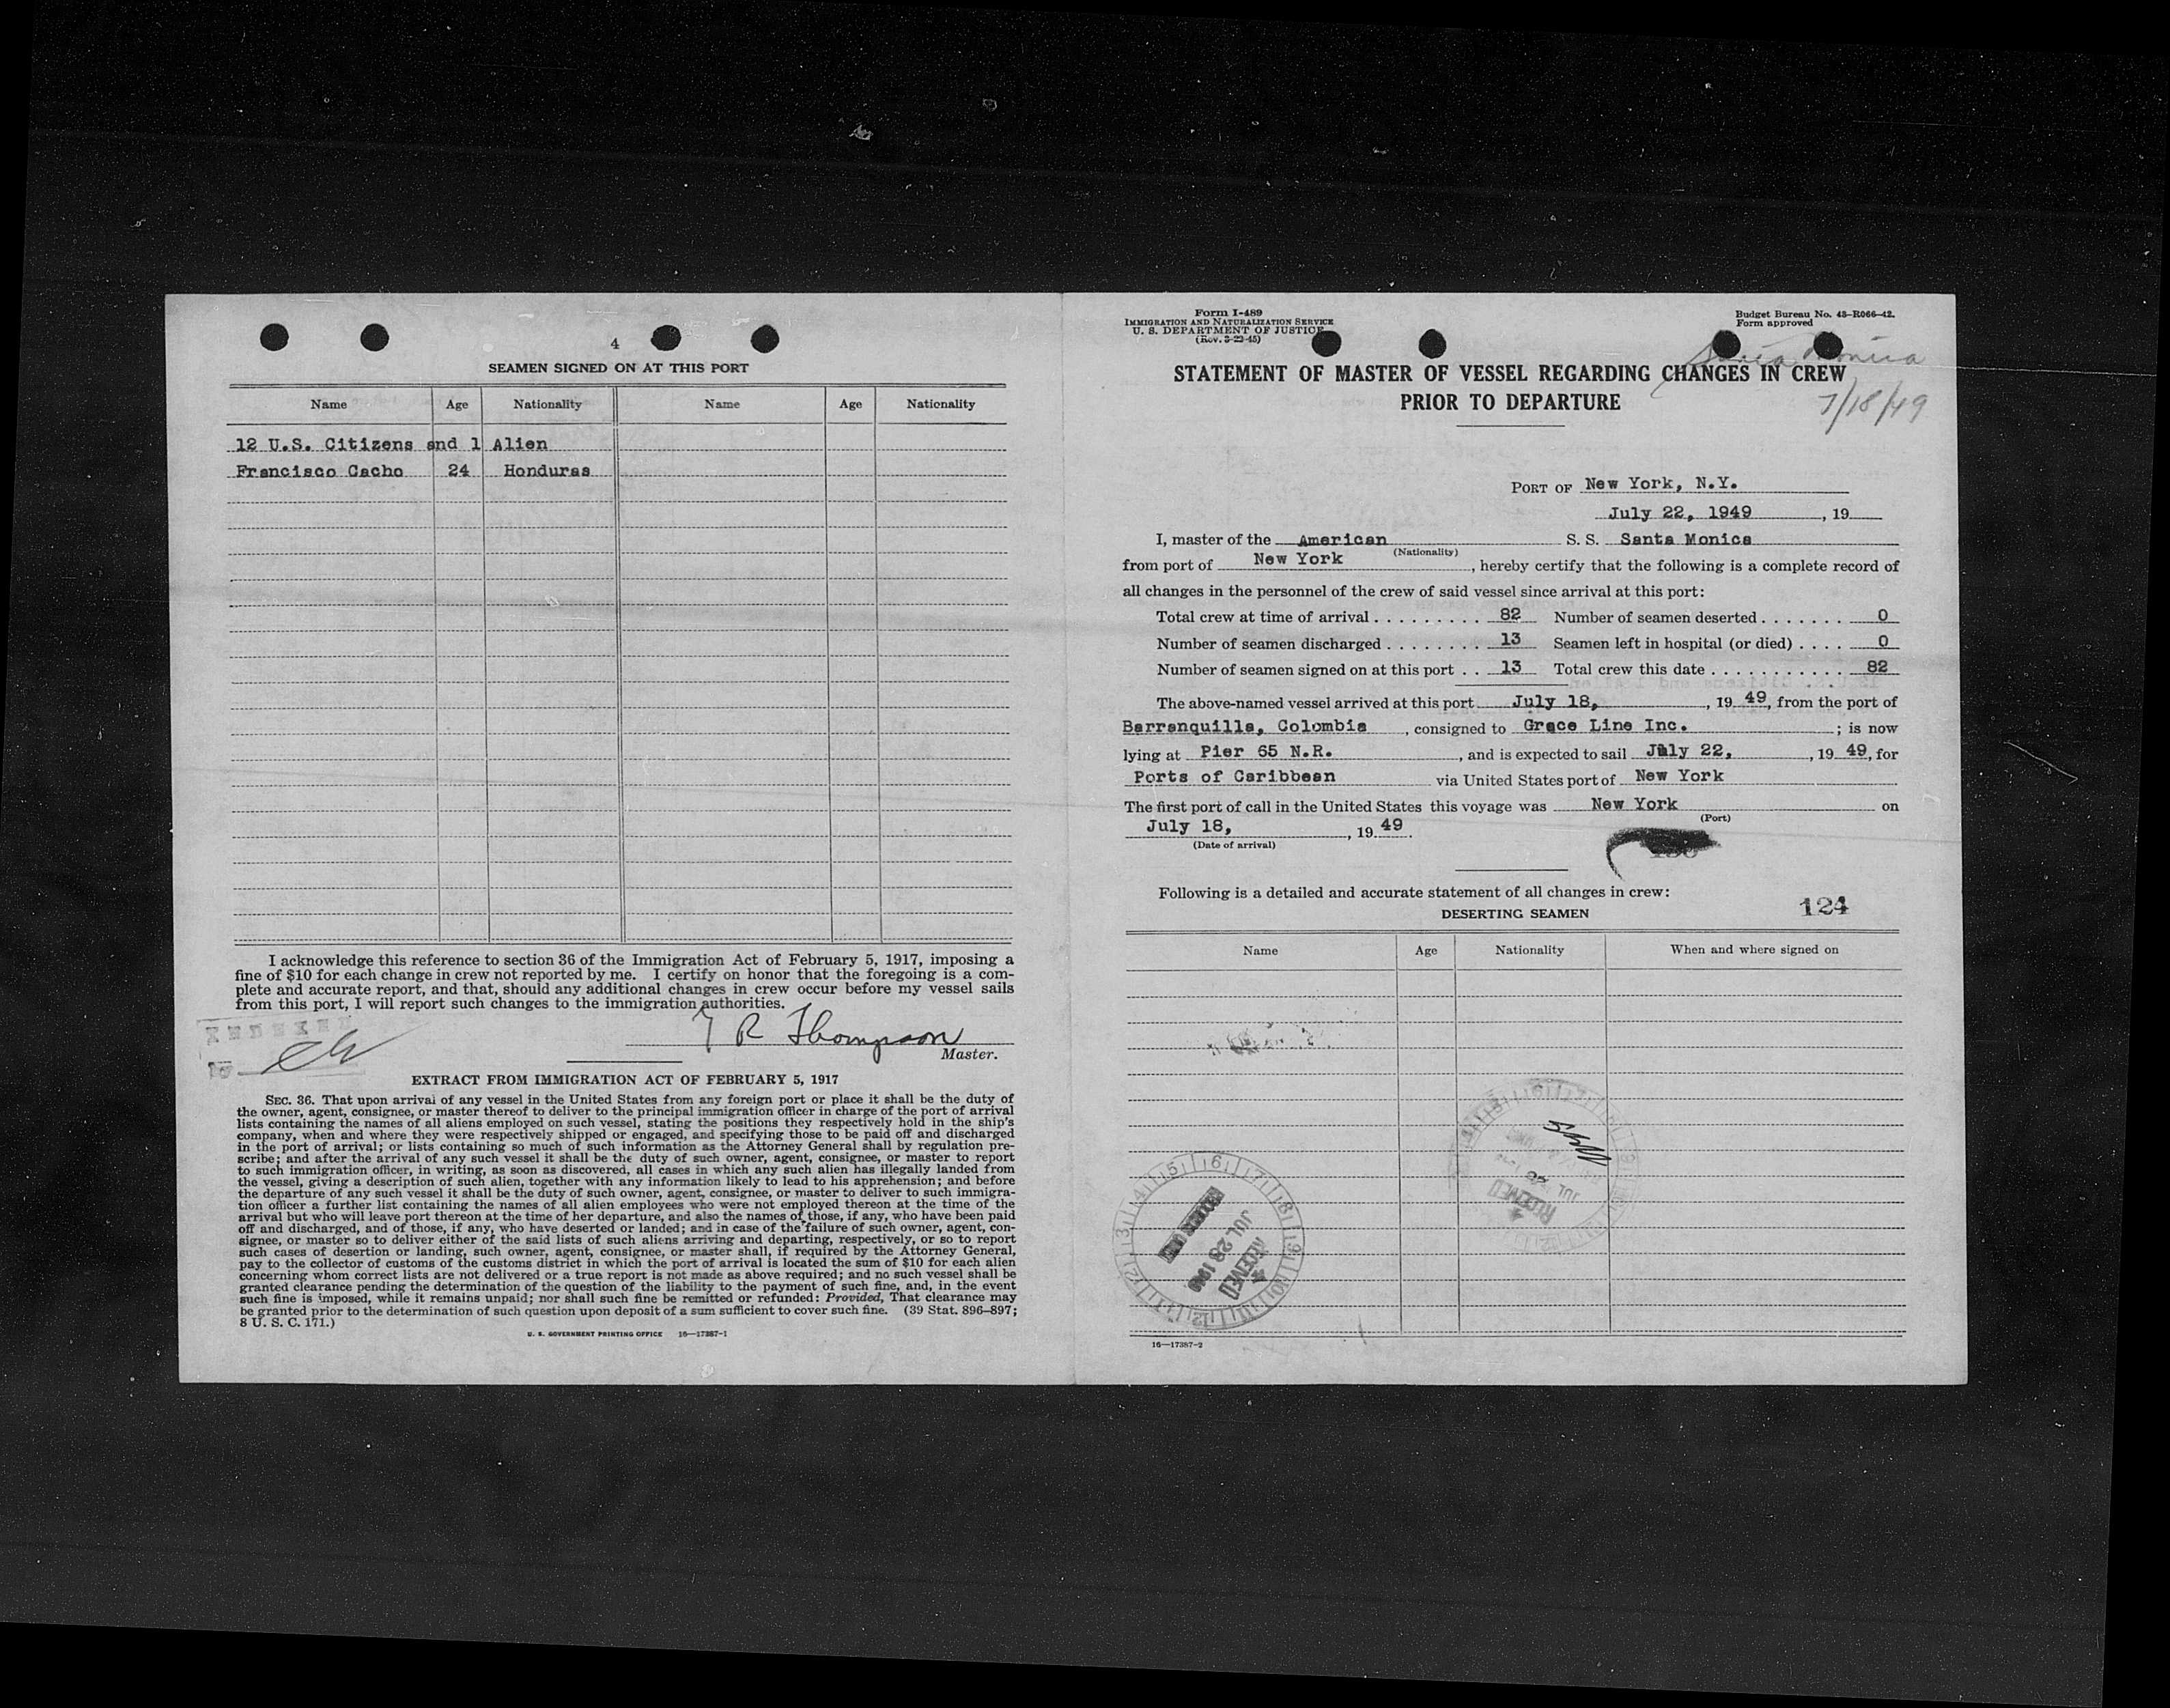 4
SEAMEN SIGNED ON AT THIS PORT
Name Age Nationality Name Age Nationality
12 U.S. Citizens and 1 Alien
Francisco Cacho 24 Honduras
I acknowledge this reference to section 36 of the Immigration Act of February 5, 1917, imposing a
fine of $10 for each change in crew not reported by me. I certify on honor that the foregoing is a com-
plete and accurate report, and that, should any additional changes in crew occur before my vessel sails
from this port, I will report such changes to the immigration authorities.
R Thompson
Master.
EXTRACT FROM IMMIGRATION ACT OF FEBRUARY 5, 1917
SEC. 36. That upon arrival of any vessel in the United States from any foreign port or place it shall be the duty of
the owner, agent, consignee, or master thereof to deliver to the principal immigration officer in charge of the port of arrival
lists containing the names of all aliens employed on such vessel, stating the positions they respectively hold in the ship's
company, when and where they were respectively shipped or engaged, and specifying those to be paid off and discharged
in the port of arrival; or lists containing so much of such information as the Attorney General shall by regulation pre-
scribe; and after the arrival of any such vessel it shall be the duty of such owner, agent, consignee, or master to report
to such immigration officer, in writing, as soon as discovered, all cases in which any such alien has illegally landed from
the vessel, giving a description of such alien, together with any information likely to lead to his apprehension; and before
the departure of any such vessel it shall be the duty of such owner, agent, consignee, or master to deliver to such immigra-
tion officer a further list containing the names of all alien employees who were not employed thereon at the time of the
arrival but who will leave port thereon at the time of her departure, and also the names of those, if any, who have been paid
off and discharged, and of those, if any, who have deserted or landed; and in case of the failure of such owner, agent, con-
signee, or master so to deliver either of the said lists of such aliens arriving and departing, respectively, or so to report
such cases of desertion or landing, such owner, agent, consignee, or master shall, if required by the Attorney General,
pay to the collector of customs of the customs district in which the port of arrival is located the sum of $10 for each alien
concerning whom correct lists are not delivered or a true report is not made as above required; and no such vessel shall be
granted clearance pending the determination of the question of the liability to the payment of such fine, and, in the event
such fine is imposed, while it remains unpaid; nor shall such fine be remitted or refunded: Provided, That clearance may
be granted prior to the determination of such question upon deposit of a sum sufficient to cover such fine. (39 Stat. 896–897;
8 U. S. C. 171.)
U. S. GOVERNMENT PRINTING OFFICE 16—17387-1
Form I-489
IMMIGRATION AND NATURALIZATION SERVICE
U. S. DEPARTMENT OF JUSTICE
(Rev. 3-22-45)
Budget Bureau No. 43-R066-42.
Form approved
Santa Monica
7/18/49
STATEMENT OF MASTER OF VESSEL REGARDING CHANGES IN CREW
PRIOR TO DEPARTURE
PORT OF New York, N.Y.
July 22, 1949, 19
I, master of the American S. S. Santa Monica
(Nationality)
from port of New York, hereby certify that the following is a complete record of
all changes in the personnel of the crew of said vessel since arrival at this port:
Total crew at time of arrival . . . . . . . . . 82 Number of seamen deserted . . . . . . . 0
Number of seamen discharged . . . . . . . . 13 Seamen left in hospital (or died) . . . . 0
Number of seamen signed on at this port . . 13 Total crew this date . . . . . . . . . . . . 82
The above-named vessel arrived at this port July 18, , 19 49, from the port of
Barranquilla, Colombia , consigned to Grace Line Inc. ; is now
lying at Pier 65 N.R. , and is expected to sail July 22, , 19 49, for
Ports of Caribbean via United States port of New York
The first port of call in the United States this voyage was New York on
(Port)
July 18, , 19 49.
(Date of arrival)
Following is a detailed and accurate statement of all changes in crew:
DESERTING SEAMEN
124
Name Age Nationality When and where signed on
RECEIVED
JUL 28
RECEIVED
JUL
16—17387-2